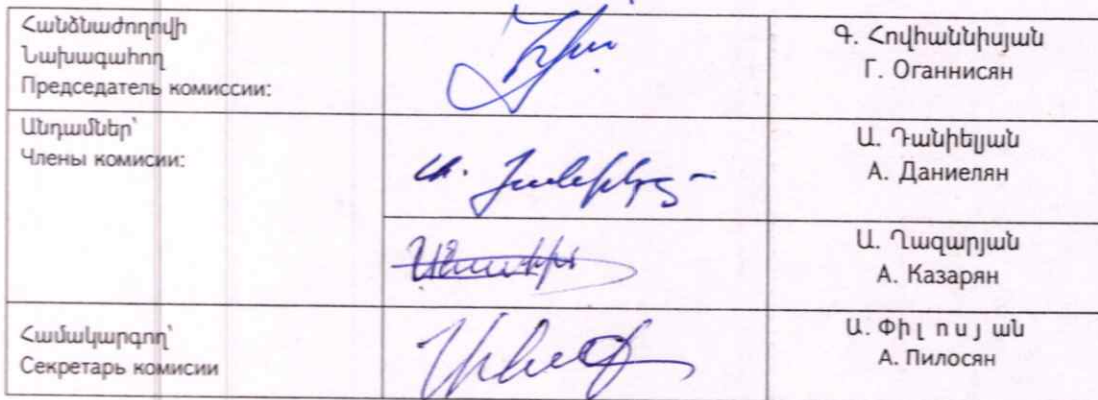 Հանձնաժողովի
Նախագահող
Председатель комиссии:
Գ. Հովհաննիսյան
Г. Оганнисян
Անդամներ՝
Члены комисии:
Ա. Դանիելյան
А. Даниелян
Ա. Ղազարյան
А. Казарян
Համակարգող՝
Секретарь комисии
Ա. Փիլոսյան
А. Пилосян